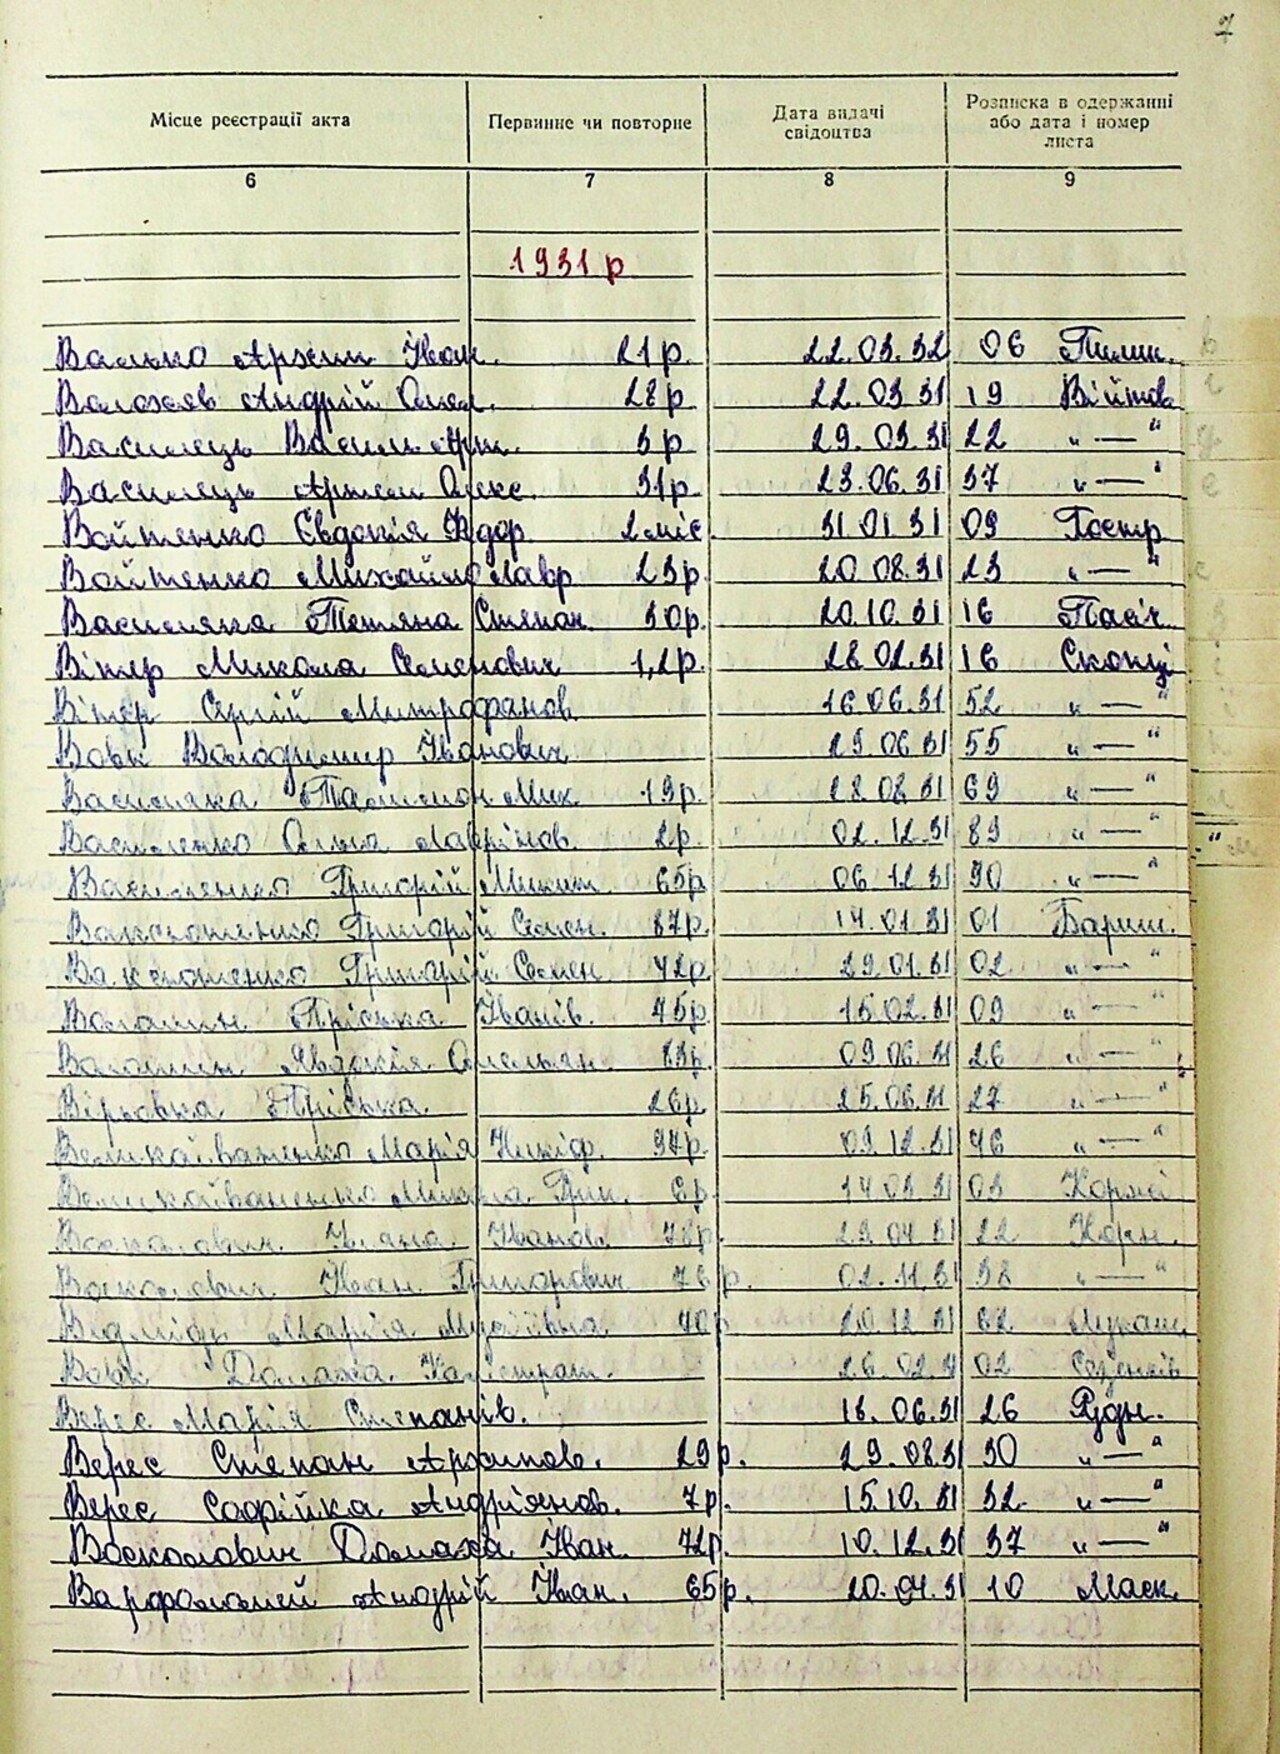 7
Місце реєстрації акта Первинне чи повторне Дата видачі свідоцтва Розписка в одержанні або дата і номер листа
6 7 8 9
1931 р
Валько Архип Іван. 21р. 22.03.32 06 Пилип.
Андрій Омел. 28р 22.03 31 19 Війтов
Василець Василь Арт. 3р 29.03.31 22 „—“
Василець Артем Олекс. 31р. 23.06.31 37 „—“
Войтенко Євдокія Федор. 2 міс. 31.01.31 09 Гостр
Войтенко Михайло Лавр. 23р. 20.08.31 23 „—“
Василяка Тетяна Степан. 30р. 20.10.31 16 Пасіч.
Вітер Микола Семенович 1,2р. 28.02.31 16 Скопці
Вітер Сергій Митрофанов. 16.06.31 52 „—“
Вовк Володимир Іванович 29.06.31 55 „—“
Василяка Мик. 19р. 28.08.31 69 „—“
Василенко Ольга Лаврінов. 2р. 02.12.31 89 „—“
Василенко Григорій Микит. 65р 06.12.31 90 „—“
Григорій Семен. 87р. 14.01.31 01 Бариш.
Григорій Семен. 72р. 29.01.31 02 „—“
Волошин Пріська Іванів. 45р. 15.02.31 09 „—“
Волошин Явдокія Омельян. 83р. 09.06.31 26 „—“
Вірьовка Пріська. 26р. 25.06.31 27 „—“
Великоіваненко Марія Никіф. 37р. 09.12.31 46 „—“
Великоіваненко Микола Гри. 6р. 14.03.31 03 Коржі
Восколович Уляна Іванов. 78р. 29.04.31 22 Корж.
Восколович Іван Григорович 76р. 02.11.31 38 „—“
Відмідь Марія Мусіївна. 40р 20.12.31 62 Лукаш.
Вовк Домаха Калістрат. 26.02.31 02 Селешків
Верес Марія Степанів. 18.06.31 26 Рудн.
Верес Степан Архипов. 29р. 29.08.31 30 „—“
Верес Софійка Андріянов. 7р. 15.10.31 32 „—“
Восколович Домаха Іван. 72р. 10.12.31 37 „—“
Варфоломей Андрій Іван. 65р. 20.04.31 10 Маск.